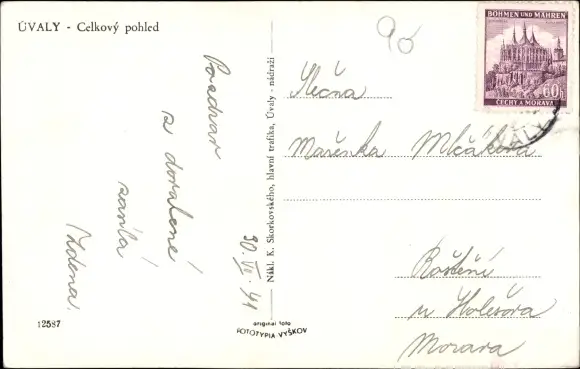 ÚVALY - Celkový pohled
90
BÖHMEN UND MÄHREN
60h
ČECHY A MORAVA
VALY
Slečna
Mařenka Mlčákova
Roštění
u Holešova
Morava
Pozdrav
z dovolené
zasílá
Zdena.
30. VII. 41
Nákl. K. Skorkovského, hlavní trafika, Úvaly - nádraží
original foto
FOTOTYPIA-VYŠKOV
12587